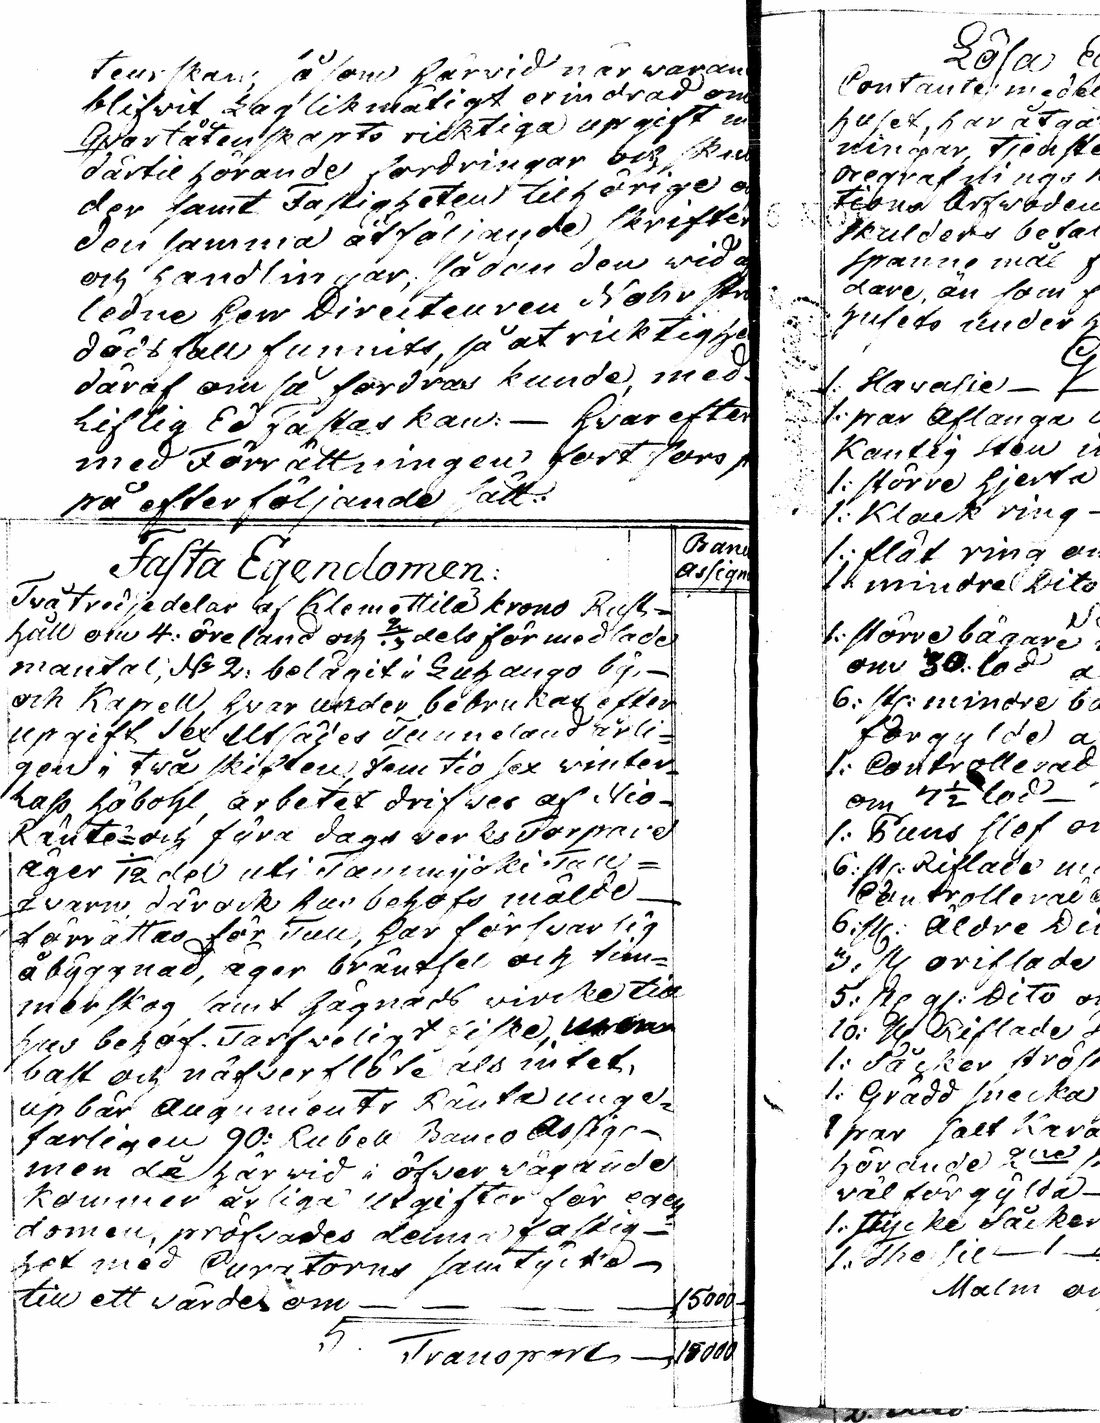 så som härvid närvaran
blifwit Laglikmätigt erindrad om
Qvarlåtenskapts ricktiga upgift
därtil hörande fordringar och skul
der samt Fastigheten tilhörige
den samma åtföljande skrifter
och handlingar, sådan den wid
ledne Herr Directeuren Mohr
dödsfall funnits, så at ricktighe
däraf om så fordras kunde, med
Liflig Ed fästas kan: — Hvarefter
med Förrättningen fortfors
på efterföljande sätt:
Fasta Egendomen:
Banc
Assign
Två tredjedelar af Klemettilä krono Rust-
håll om 4: öreland och 2/3 dels förmedlade
mantal, No 2: belägit i Luhango by,
och Kapell, hvarunder bebrukas efter
upgift sex Utsädes Tunneland årli=
gen i två skiften, Femtio sex winter-
lass höbohl, arbetet drifwes af Nio
Ränte- och fyra dagswerks Torpare
äger 1/12 del uti Tammijoki Tull=
qvarn, där ock husbehofs mälde
förrättas för Tull, har försvarlig
åbyggnad, äger bräntsel och tim=
merskog samt hägnads wircke till
husbehof. Tarfveligt fiske,
bast och näfwerflöte als intet,
upbär Augments Ränta unge=
farligen 90: Rubell Banco Assig-
men då härwid i öfwerwägande
kommer årliga Utgifter för egen
domen, pröfwades denna fastig-
het med Curatorns samtycke
till ett wärde om — — — — 15000
Transport — 15000
Lösa
Contante medel
huset, har åtgå
ningar, Tjenste
begrafnings
tions Arfwoden
skulders beta
spannemål
dare, än som
husets under
1: Havasie —
1: par Aflånga
kantig sten
1: större hjerta
1: Klack ring —
1: slät ring
1: mindre Dito
1: större bägare
om 30. lod
6: st: mindre
förgylde
1: Controllerad
om 7 1/2 lod —
1: Puns slef
6: st: Riflade
Controllerad
6: st: Äldre
3: st oriflade
5: st gl: Dito
10: st Riflade
1: Såcker strös
1: Grädd snecka
1 par salt Kara
hörande
wäl förgylda —
1: stycke Såcker
1: The sil — 1 —
Malm